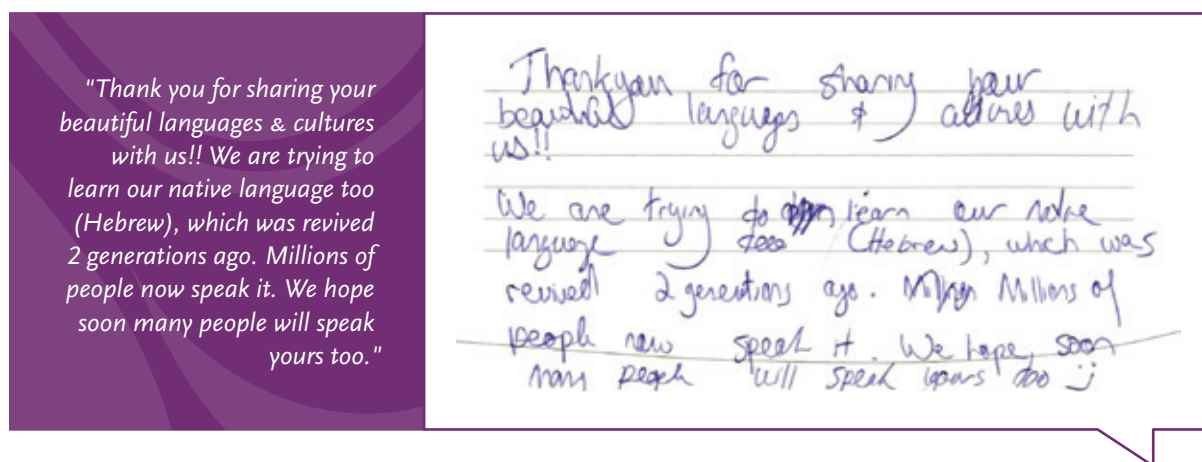 "Thank you for sharing your
beautiful languages & cultures
with us!! We are trying to
learn our native language too
(Hebrew), which was revived
2 generations ago. Millions of
people now speak it. We hope
soon many people will speak
yours too."
Thankyou for sharing your
beautiful languages & cultures with
us!!
We are trying to learn our native
language too (Hebrew), which was
revived 2 generations ago. Millions of
people now speak it. We hope, soon
many people will speak yours too :)